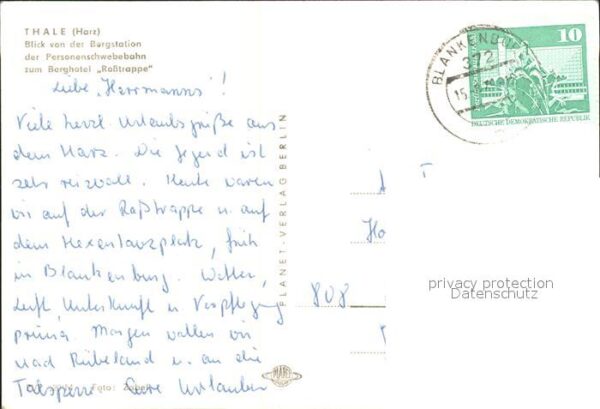 THALE (Harz)
Blick von der Bergstation
der Personenschwebebahn
zum Berghotel „Roßtrappe"
Liebe „Herrmanns"!
Viele herzl. Urlaubsgrüße aus
dem Harz. Die Gegend ist
sehr reizvoll. Heute waren
wir auf der Roßtrappe u. auf
dem Hexentanzplatz, früh
in Blankenburg. Wetter,
Luft, Unterkunft u Verpflegung
prima. Morgen wollen wir
nach Rübeland u. an die
Talsperre Eure Urlauber
Foto:
PLANET-VERLAG BERLIN
PLANET
BLANKENBURG
372
15.
10
DEUTSCHE DEMOKRATISCHE REPUBLIK
Ho
808
privacy protection
Datenschutz